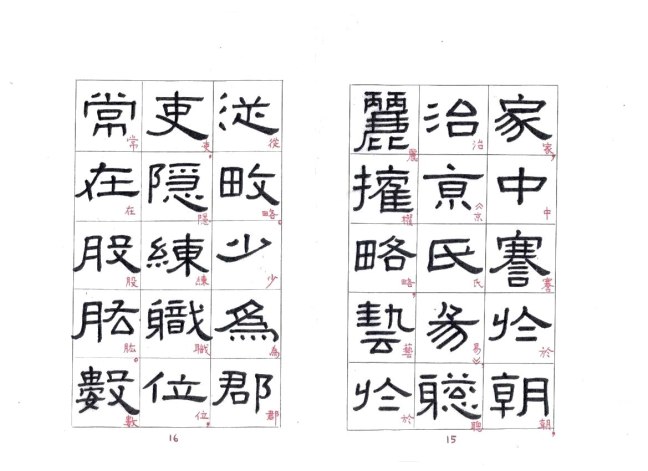 家中謇扵朝
家，中謇於朝，
治亰氏易聦
治《京氏易》，聰
麗攉略藝扵
麗權略，藝於
15
従畋少為郡
從略。少為郡
吏隱練職位
吏，隱練職位，
常在股肱數
常在股肱。數
16